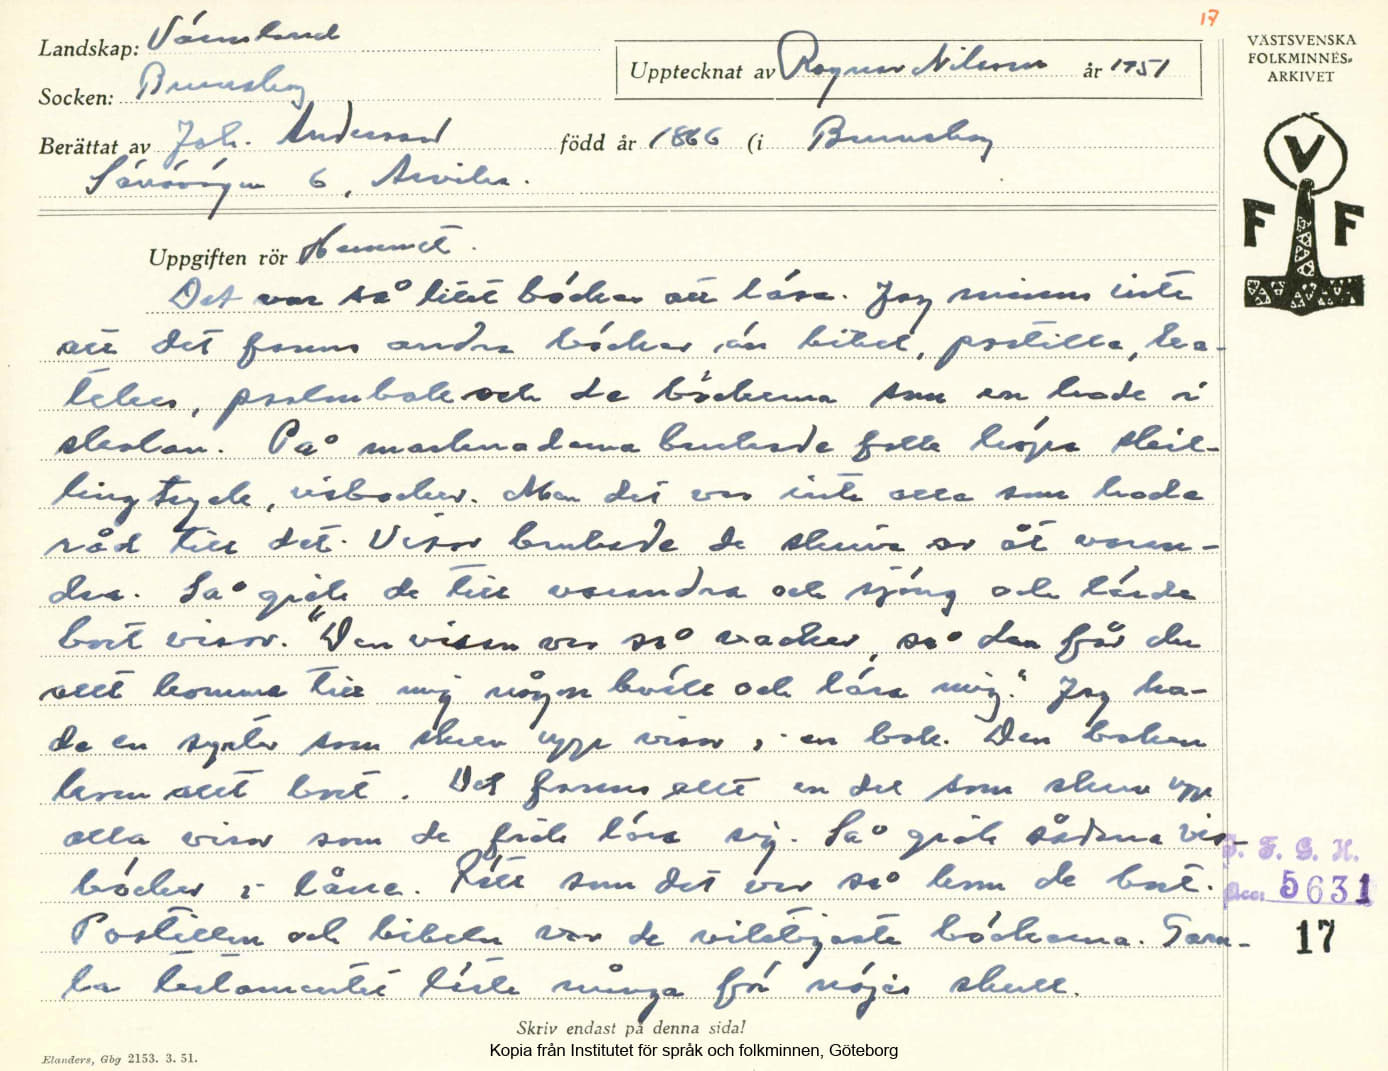 17
Landskap: Värmland
Upptecknat av Ragnar Nilsson år 1951
VÄSTSVENSKA
FOLKMINNES-
ARKIVET
Socken: Brunskog
Berättat av Joh. Andersson född år 1866 (i Brunskog
6, Arvika.
V
F F
Uppgiften rör Hemmet.
Det var så litet böcker att läsa. Jag minns inte
att det fanns andra böcker än bibel, postilla, ka-
tekes, psalmbok och de böckerna som en hade i
skolan. På marknaderna brukade folk köpa skil-
lingtryck, visböcker. Men det var inte alla som hade
råd till det. Visor brukade de skriva av åt varan-
dra. Så gick de till varandra och sjöng och lärde
bort visor. "Den visan var så vacker, så den får du
allt komma till mig någon kväll och lära mig." Jag ha-
de en syster som skrev upp visor i en bok. Den boken
kom allt bort. Det fanns allt en del som skrev upp
alla visor som de fick lära sig. Så gick sådana vis-
böcker i låne. Rätt som det var så kom de bort.
Postillan och bibeln var de viktigaste böckerna. Gam-
la testamentet läste många för nöjes skull.
I. F. G. H.
Acc: 5631
17
Skriv endast på denna sida!
Elanders, Gbg 2153. 3. 51.
Kopia från Institutet för språk och folkminnen, Göteborg